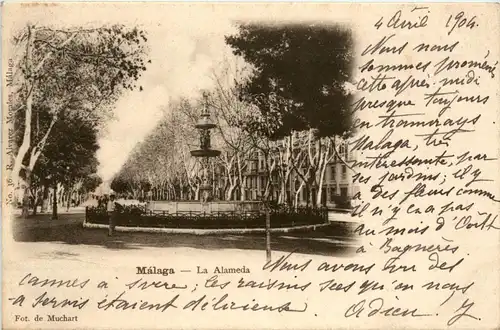 4 Avril 1904.
Nous nous
sommes promené
cette après-midi
presque toujours
en tramways.
Malaga, très
intéressante, par
ses jardins; il y
a des fleurs comme
il n'y en a pas
au mois d'Août
à Bagnères
Nous avons
vu des
cannes à sucre, les raisins secs qu'on nous
a servis étaient délicieux.
Adieu. J.
Málaga — La Alameda
Fot. de Muchart
No. 16 R. Alvarez Morales, Málaga